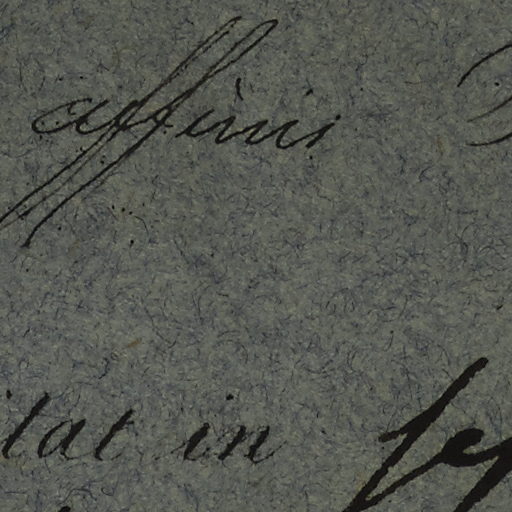 affinis
itat in